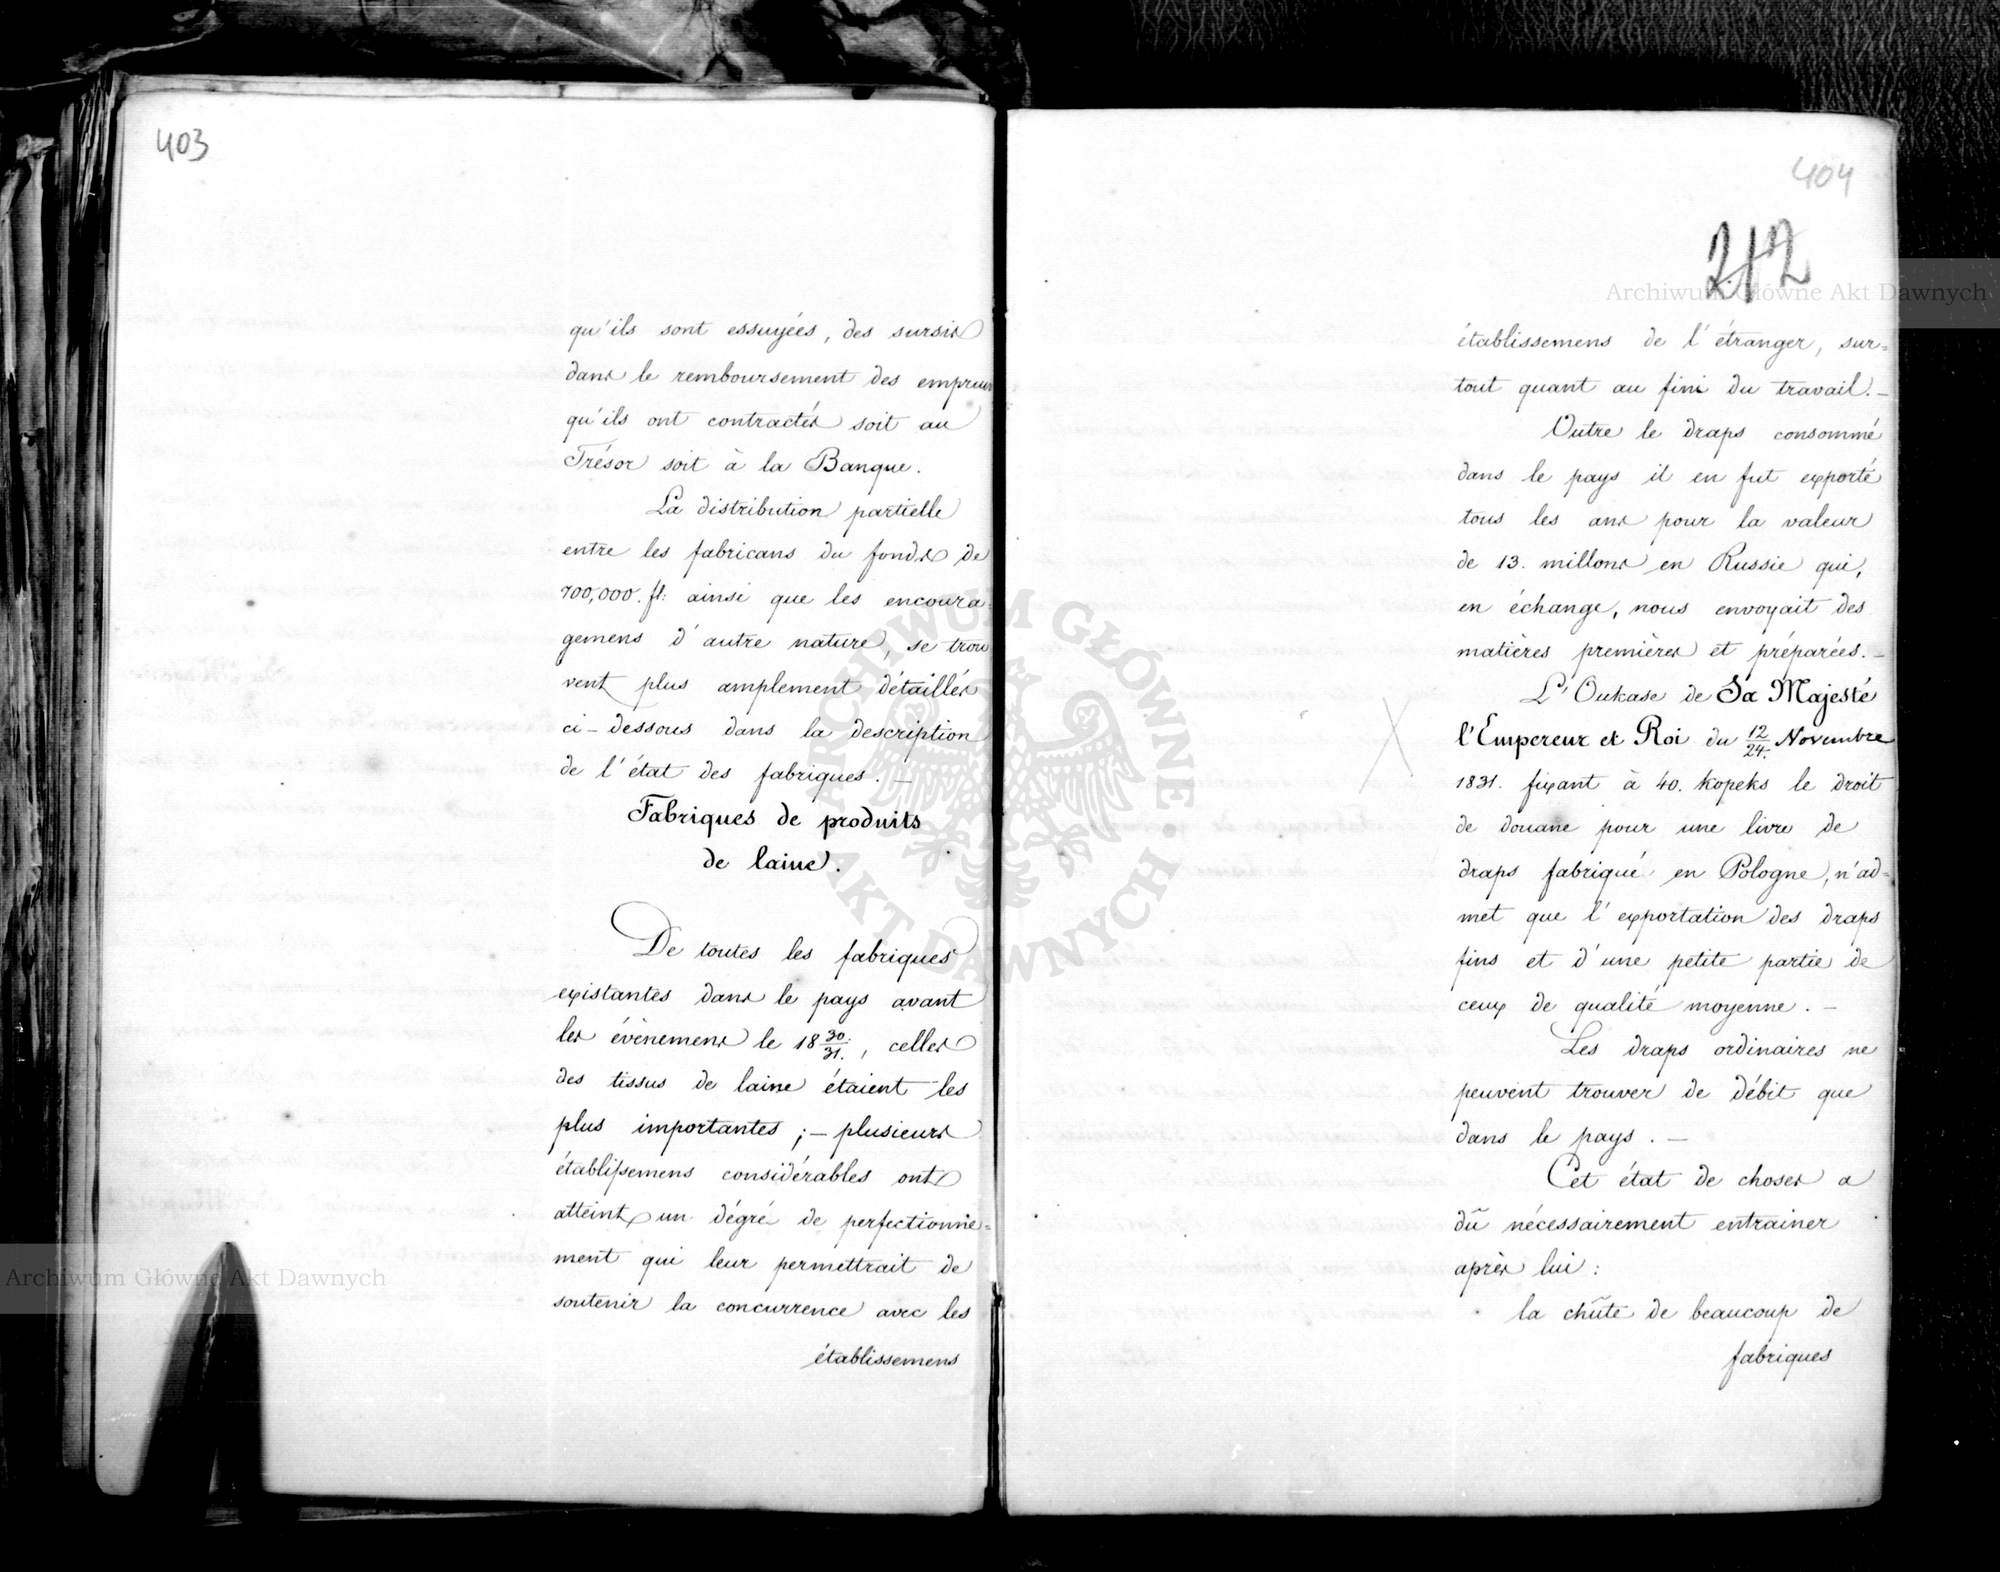 403
qu'ils sont essuyées, des sursis
dans le remboursement des emprun
qu'ils ont contractés soit au
Trésor soit à la Banque.
La distribution partielle
entre les fabricans du fonds de
700,000. fl: ainsi que les encoura=
gemens d'autre nature, se trou
vent plus amplement détaillés
ci-dessous dans la description
de l'état des fabriques. —
Fabriques de produits
de laine.
De toutes les fabriques
existantes dans le pays avant
les évènemens le 18 30/31., celles
des tissus de laine étaient les
plus importantes ; — plusieurs
établissemens considérables ont
atteint un dégré de perfectionne=
ment qui leur permettrait de
soutenir la concurrence avec les
établissemens
404
212
établissemens de l'étranger, sur=
tout quant au fini du travail. —
Outre le draps consommé
dans le pays il en fut exporté
tous les ans pour la valeur
de 13. millons en Russie qui,
en échange, nous envoyait des
matières premières et préparées. —
L'Oukase de Sa Majesté
l'Empereur et Roi du 12/24. Novembre
1831. fixant à 40. kopeks le droit
de douane pour une livre de
draps fabriqué en Pologne, n'ad=
met que l'exportation des draps
fins et d'une petite partie de
ceux de qualité moyenne. —
Les draps ordinaires ne
peuvent trouver de débit que
dans le pays. —
Cet état de choses a
dû nécessairement entrainer
après lui :
la chûte de beaucoup de
fabriques
Archiwum Główne Akt Dawnych
Archiwum Główne Akt Dawnych
ARCHIWUM GŁÓWNE • AKT DAWNYCH •